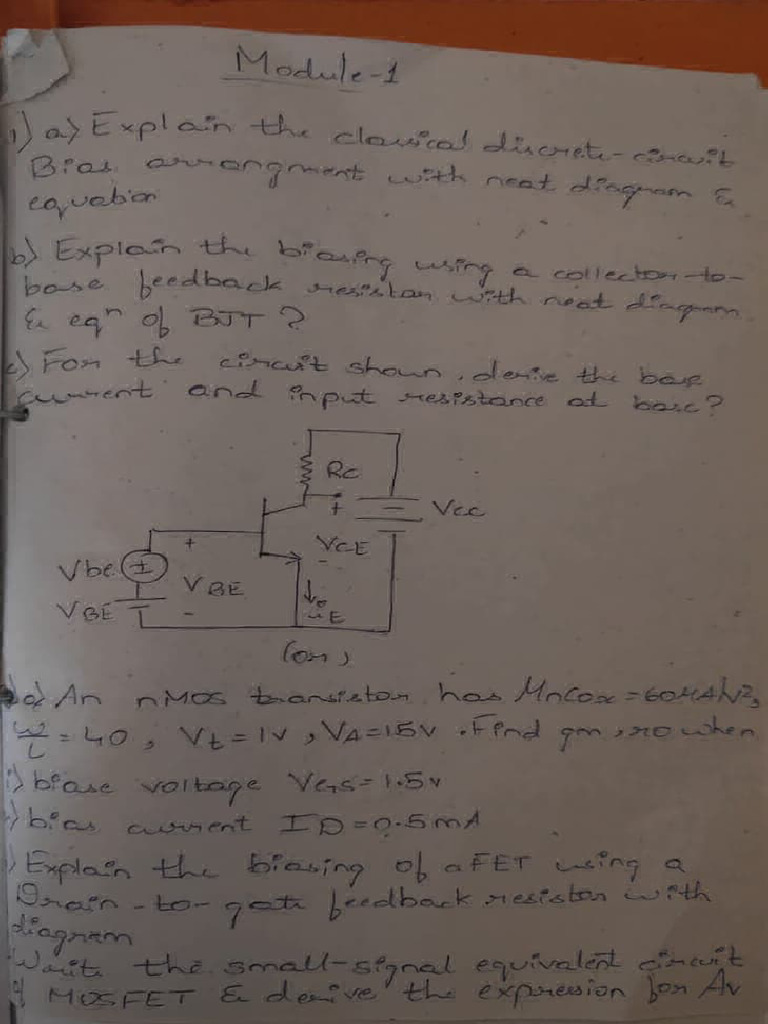 Module-1
1) a) Explain the classical discrete-circuit
Bias arrangment with neat diagram &
equation
b) Explain the biasing using a collector-to-
base feedback resistor with neat diagram
& eqn of BJT ?
c) For the circuit shown, derive the base
current and input resistance at base?
Rc
+
Vcc
VCE
-
+
Vbe
VBE
VBE
-
iE
(or)
a) An nMOS transistor has MnCox = 60MA/V²,
W/L = 40, Vt = 1V, VA = 15V. Find gm, ro when
i) biase voltage VGS = 1.5v
) bias current ID = 0.5mA
) Explain the biasing of a FET using a
Drain-to-gate feedback resistor with
diagram
Write the small-signal equivalent circuit
of MOSFET & derive the expression for Av